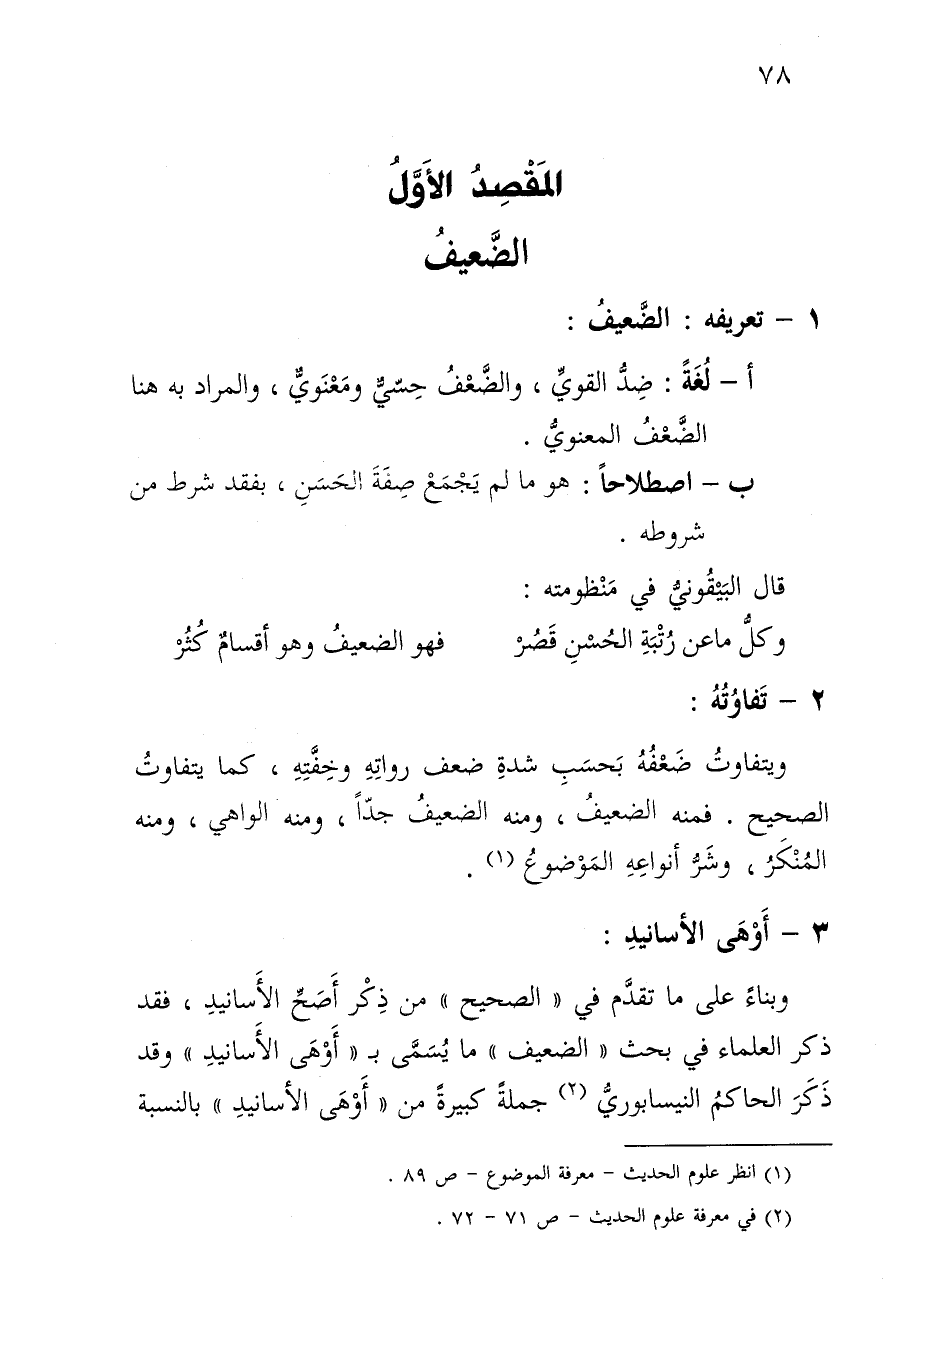 ٧٨
المَقْصِدُ الأَوَّلُ
الضَّعيفُ
١ – تعريفه : الضَّعيفُ :
أ – لُغَةً : ضِدُّ القويِّ ، والضَّعْفُ حِسّيٌّ ومَعْنَويٌّ ، والمراد به هنا
الضَّعْفُ المعنويُّ .
ب – اصطلاحاً : هو ما لم يَجْمَعْ صِفَةَ الحَسَنِ ، بفقد شرط من
شروطه .
قال البَيْقُونيُّ في مَنْظومته :
وكلُّ ماعن رُتْبَةِ الحُسْنِ قَصُرْ    فهو الضعيفُ وهو أقسامٌ كُثُرْ
٢ – تَفاوُتُهُ :
ويتفاوتُ ضَعْفُهُ بَحسَبِ شدةِ ضعف رواتِهِ وخِفَّتِهِ ، كما يتفاوتُ
الصحيح . فمنه الضعيفُ ، ومنه الضعيفُ جدّاً ، ومنه الواهي ، ومنه
المُنْكَرُ ، وشَرُّ أنواعِهِ المَوْضوعُ (١) .
٣ – أَوْهَى الأسانيدِ :
وبناءً على ما تقدَّم في « الصحيح » من ذِكْر أَصَحِّ الأَسانيدِ ، فقد
ذكر العلماء في بحث « الضعيف » ما يُسَمَّى بـ « أَوْهَى الأَسانيدِ » وقد
ذَكَرَ الحاكمُ النيسابوريُّ (٢) جملةً كبيرةً من « أَوْهَى الأسانيدِ » بالنسبة
(١) انظر علوم الحديث – معرفة الموضوع – ص ٨٩ .
(٢) في معرفة علوم الحديث – ص ٧١ – ٧٢ .